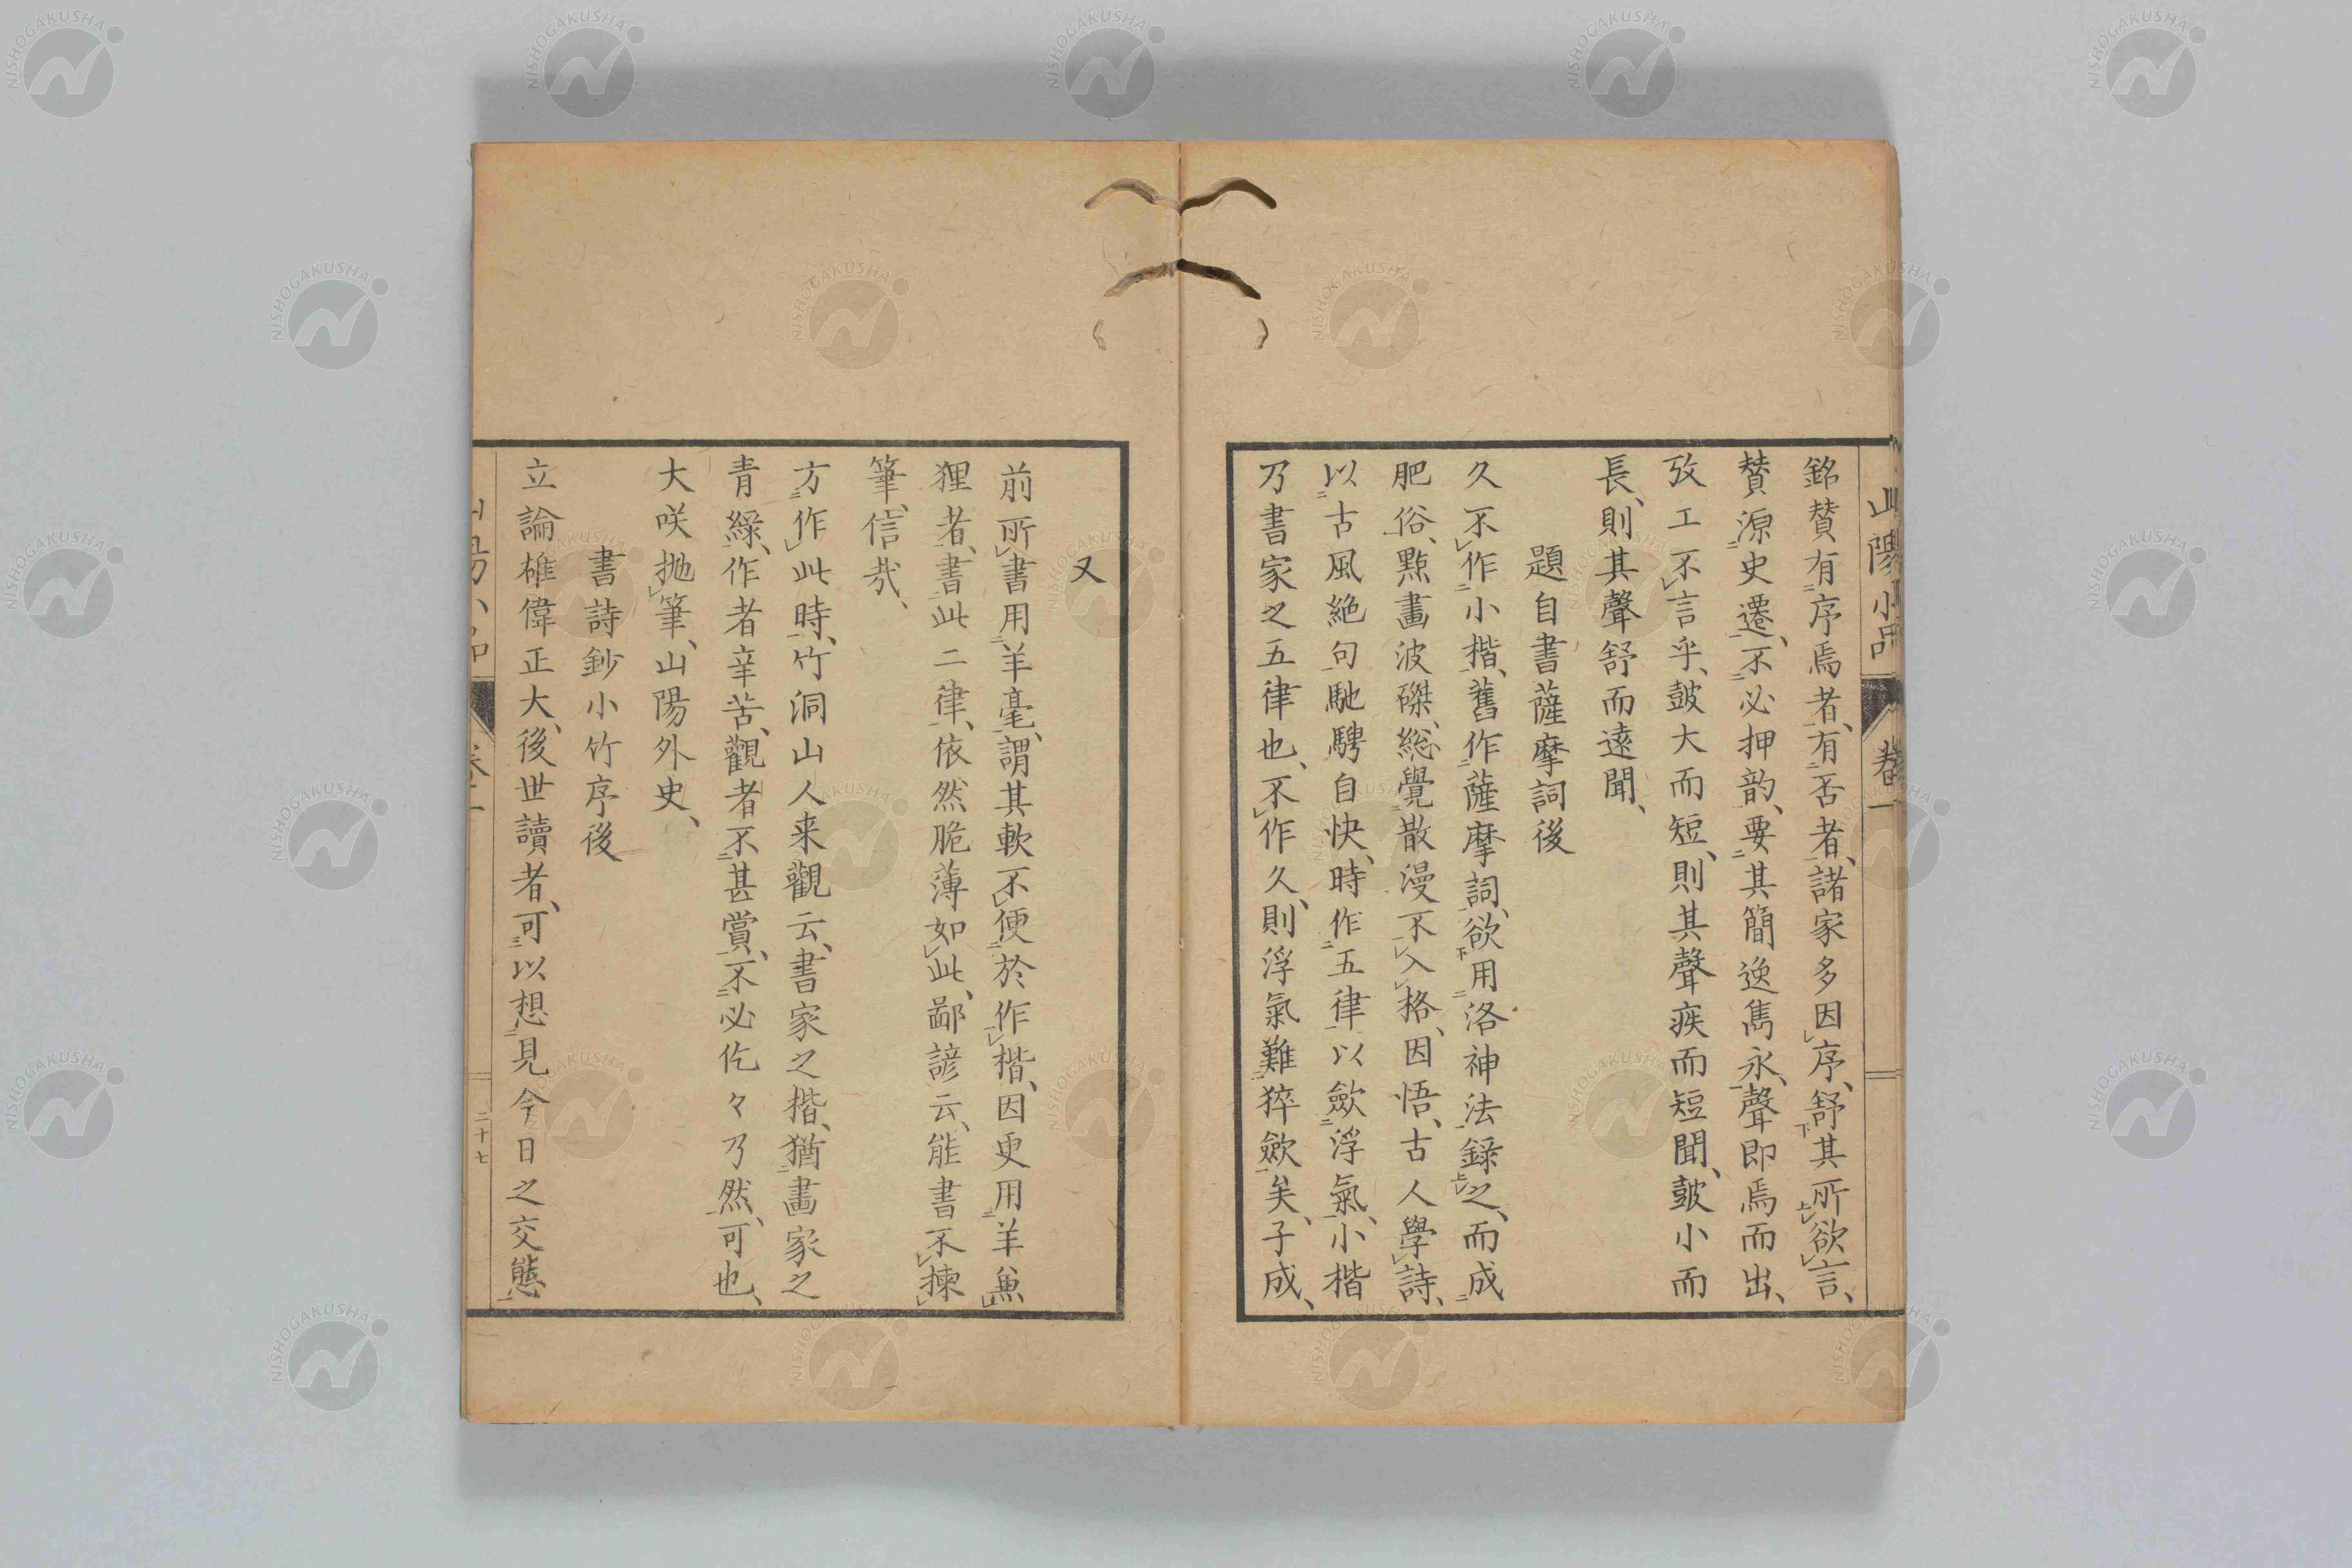 山陽小品 卷一
銘賛有序焉者、有否者、諸家多因序、舒其所欲言、
賛源史遷、不必押韵、要其簡逸雋永、聲即焉而出、
攷工不言乎、皷大而短、則其聲疾而短聞、皷小而
長、則其聲舒而遠聞、
題自書薩摩詞後
久不作小楷、舊作薩摩詞、欲用洛神法錄之、而成
肥俗、點畫波磔、総覺散漫不入格、因悟、古人學詩、
以古風絶句馳騁自快、時作五律以歛浮氣、小楷
乃書家之五律也、不作久、則浮氣難猝歛矣、子成、
又
前所書用羊毫、謂其軟不便於作楷、因更用羊兼
狸者、書此二律、依然脆薄如此、鄙諺云、能書不揀
筆、信哉、
方作此時、竹洞山人来觀云、書家之楷、猶畫家之
青綠、作者辛苦、觀者不甚賞、不必仡々乃然、可也、
大咲抛筆、山陽外史、
書詩鈔小竹序後
立論雄偉正大、後世讀者、可以想見今日之交態
二十七
NISHOGAKUSHA